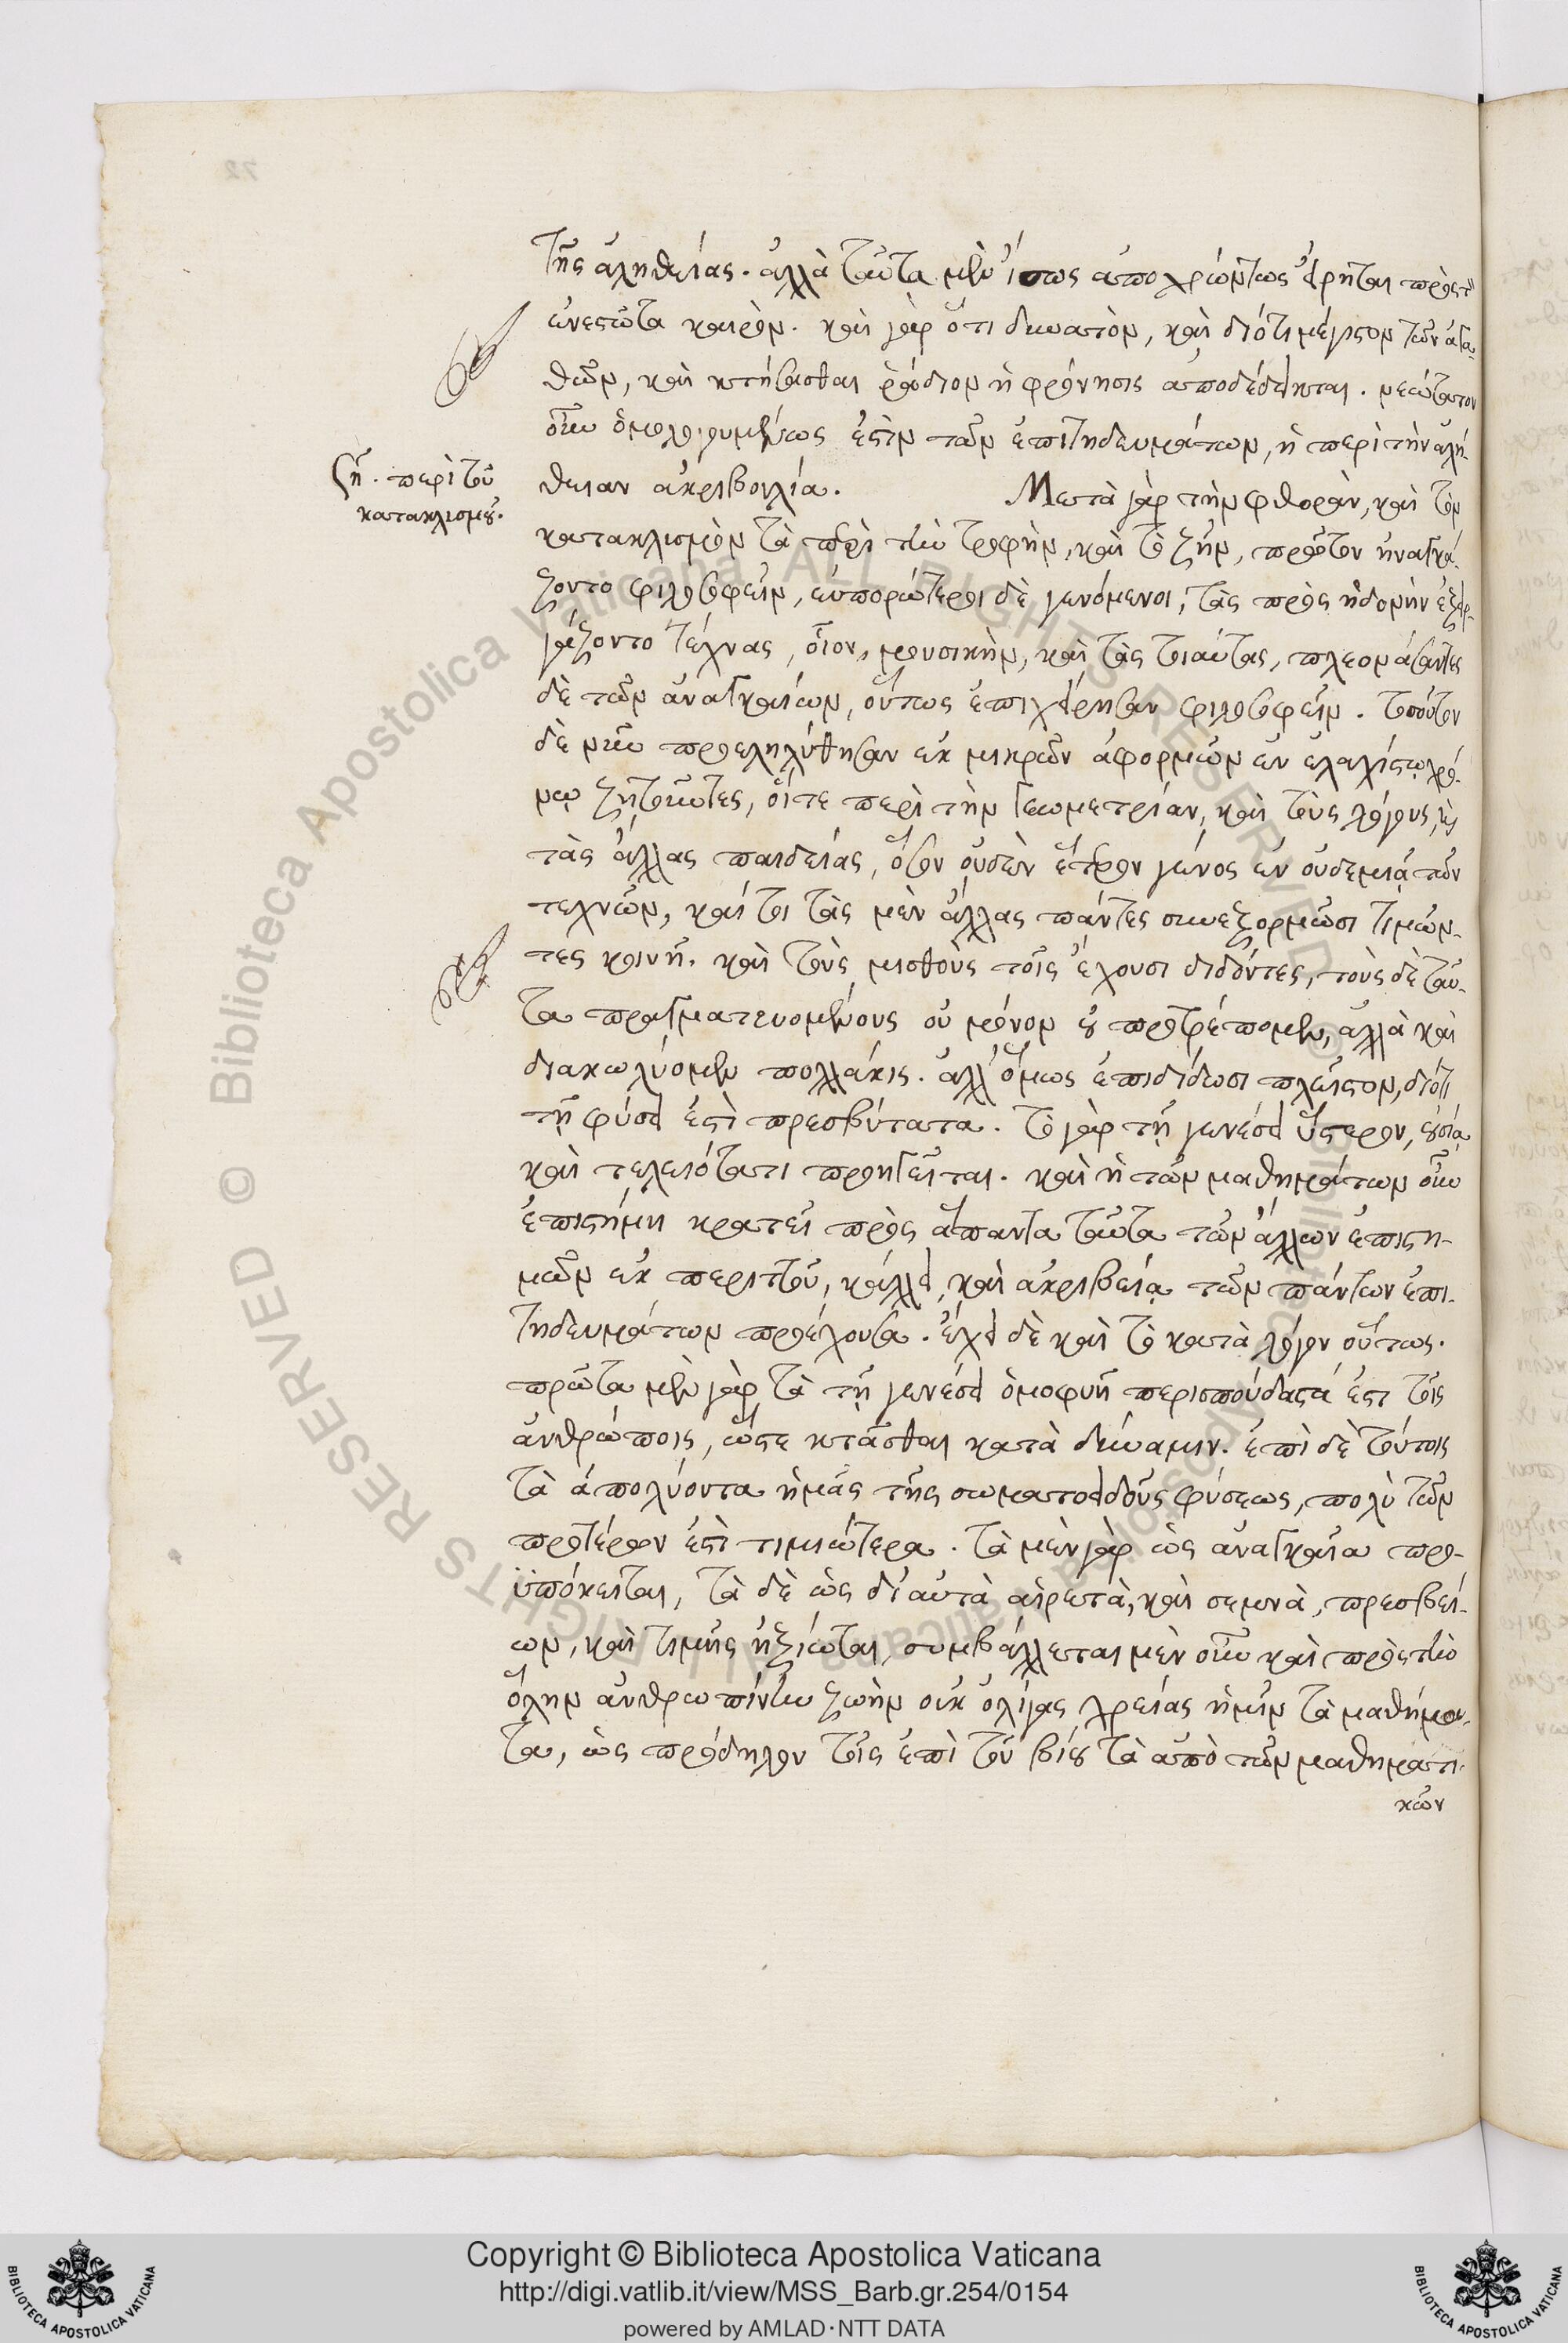 τῆς ἀληθείας. ἀλλὰ ταῦτα μὲν ἴσως ἀποχρώντως εἴρηται πρὸς τὸν
ἐνεστῶτα καιρὸν. καὶ γὰρ ὅτι δυνατὸν, καὶ διότι μέγιστον τῶν ἀγα-
θῶν, καὶ κτήσασθαι ῥάδιον ἡ φρόνησις ἀποδέδεικται. νεώτατον
οὖν ὁμολογουμένως ἐστὶν τῶν ἐπιτηδευμάτων, ἡ περὶ τὴν ἀλή-
ζη. περὶ τοῦ
κατακλισμοῦ.
θειαν ἀκριβολογία. Μετὰ γὰρ τὴν φθορὰν, καὶ τὸν
κατακλισμὸν τὰ περὶ τὴν τροφὴν, καὶ τὸ ζῆν, πρῶτον ἠναγκά-
ζοντο φιλοσοφεῖν, εὐπορώτεροι δὲ γενόμενοι, τὰς πρὸς ἡδονὴν ἐξειρ-
γάζοντο τέχνας, οἷον, μουσικὴν, καὶ τὰς τοιαύτας, πλεονάσαντες
δὲ τῶν ἀναγκαίων, οὕτως ἐπιχείρησαν φιλοσοφεῖν. τοσοῦτον
δὲ νῦν προεληλύθησαν ἐκ μικρῶν ἀφορμῶν ἐν ἐλαχίστῳ χρό-
νῳ ζητοῦντες, οἵτε περὶ τὴν γεωμετρίαν, καὶ τοὺς λόγους, καὶ
τὰς ἄλλας παιδείας, ὅσον οὐδὲν ἕτερον γένος ἐν οὐδεμιᾷ τῶν
τεχνῶν, καίτοι τὰς μὲν ἄλλας πάντες συνεξορμῶσι τιμῶν-
τες κοινῇ. καὶ τοὺς μισθοὺς τοῖς ἔχουσι διδόντες, τοὺς δὲ ταῦ-
τα πραγματευομένους οὐ μόνον οὐ προτρέπομεν, ἀλλὰ καὶ
διακωλύομεν πολλάκις. ἀλλ' ὅμως ἐπιδίδωσι πλεῖστον, διότι
τῇ φύσει ἐστὶ πρεσβύτατα. τὸ γὰρ τῇ γενέσει ὕστερον, οὐσίᾳ
καὶ τελειότητι προηγεῖται. καὶ ἡ τῶν μαθημάτων οὖν
ἐπιστήμη κρατεῖ πρὸς ἅπαντα ταῦτα τῶν ἄλλων ἐπιστη-
μῶν ἐκ περιττοῦ, κάλλει, καὶ ἀκριβείᾳ τῶν πάντων ἐπι-
τηδευμάτων προέχουσα. ἔχει δὲ καὶ τὸ κατὰ λόγον οὕτως.
πρῶτα μὲν γὰρ τὰ τῇ γενέσει ὁμοφυῆ περισπούδαστά ἐστι τοῖς
ἀνθρώποις, ὥστε κτᾶσθαι κατὰ δύναμιν. ἐπὶ δὲ τούτοις
τὰ ἀπολύοντα ἡμᾶς τῆς σωματοειδοῦς φύσεως, πολὺ τῶν
προτέρων ἐστὶ τιμιώτερα. τὰ μὲν γὰρ ὡς ἀναγκαῖα προ-
ϋπόκειται, τὰ δὲ ὡς δι' αὐτὰ αἱρετὰ, καὶ σεμνὰ, πρεσβεί-
ων, καὶ τιμῆς ἠξίωται, συμβάλλεται μὲν οὖν καὶ πρὸς τὴν
ὅλην ἀνθρωπίνην ζωὴν οὐκ ὀλίγας χρείας ἡμῖν τὰ μαθήμα-
τα, ὡς πρόδηλον τοῖς ἐπὶ τοῦ βίου τὰ ἀπὸ τῶν μαθηματι-
κῶν
Copyright © Biblioteca Apostolica Vaticana
http://digi.vatlib.it/view/MSS_Barb.gr.254/0154
powered by AMLAD·NTT DATA
BIBLIOTECA APOSTOLICA VATICANA
BIBLIOTECA APOSTOLICA VATICANA
Biblioteca Apostolica Vaticana ALL RIGHTS RESERVED © Biblioteca Apostolica Vaticana ALL RIGHTS RESERVED ©